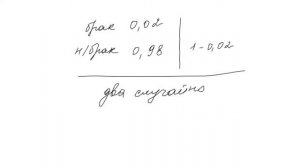 брак 0,02
н/брак 0,98 1-0,02
два случайно